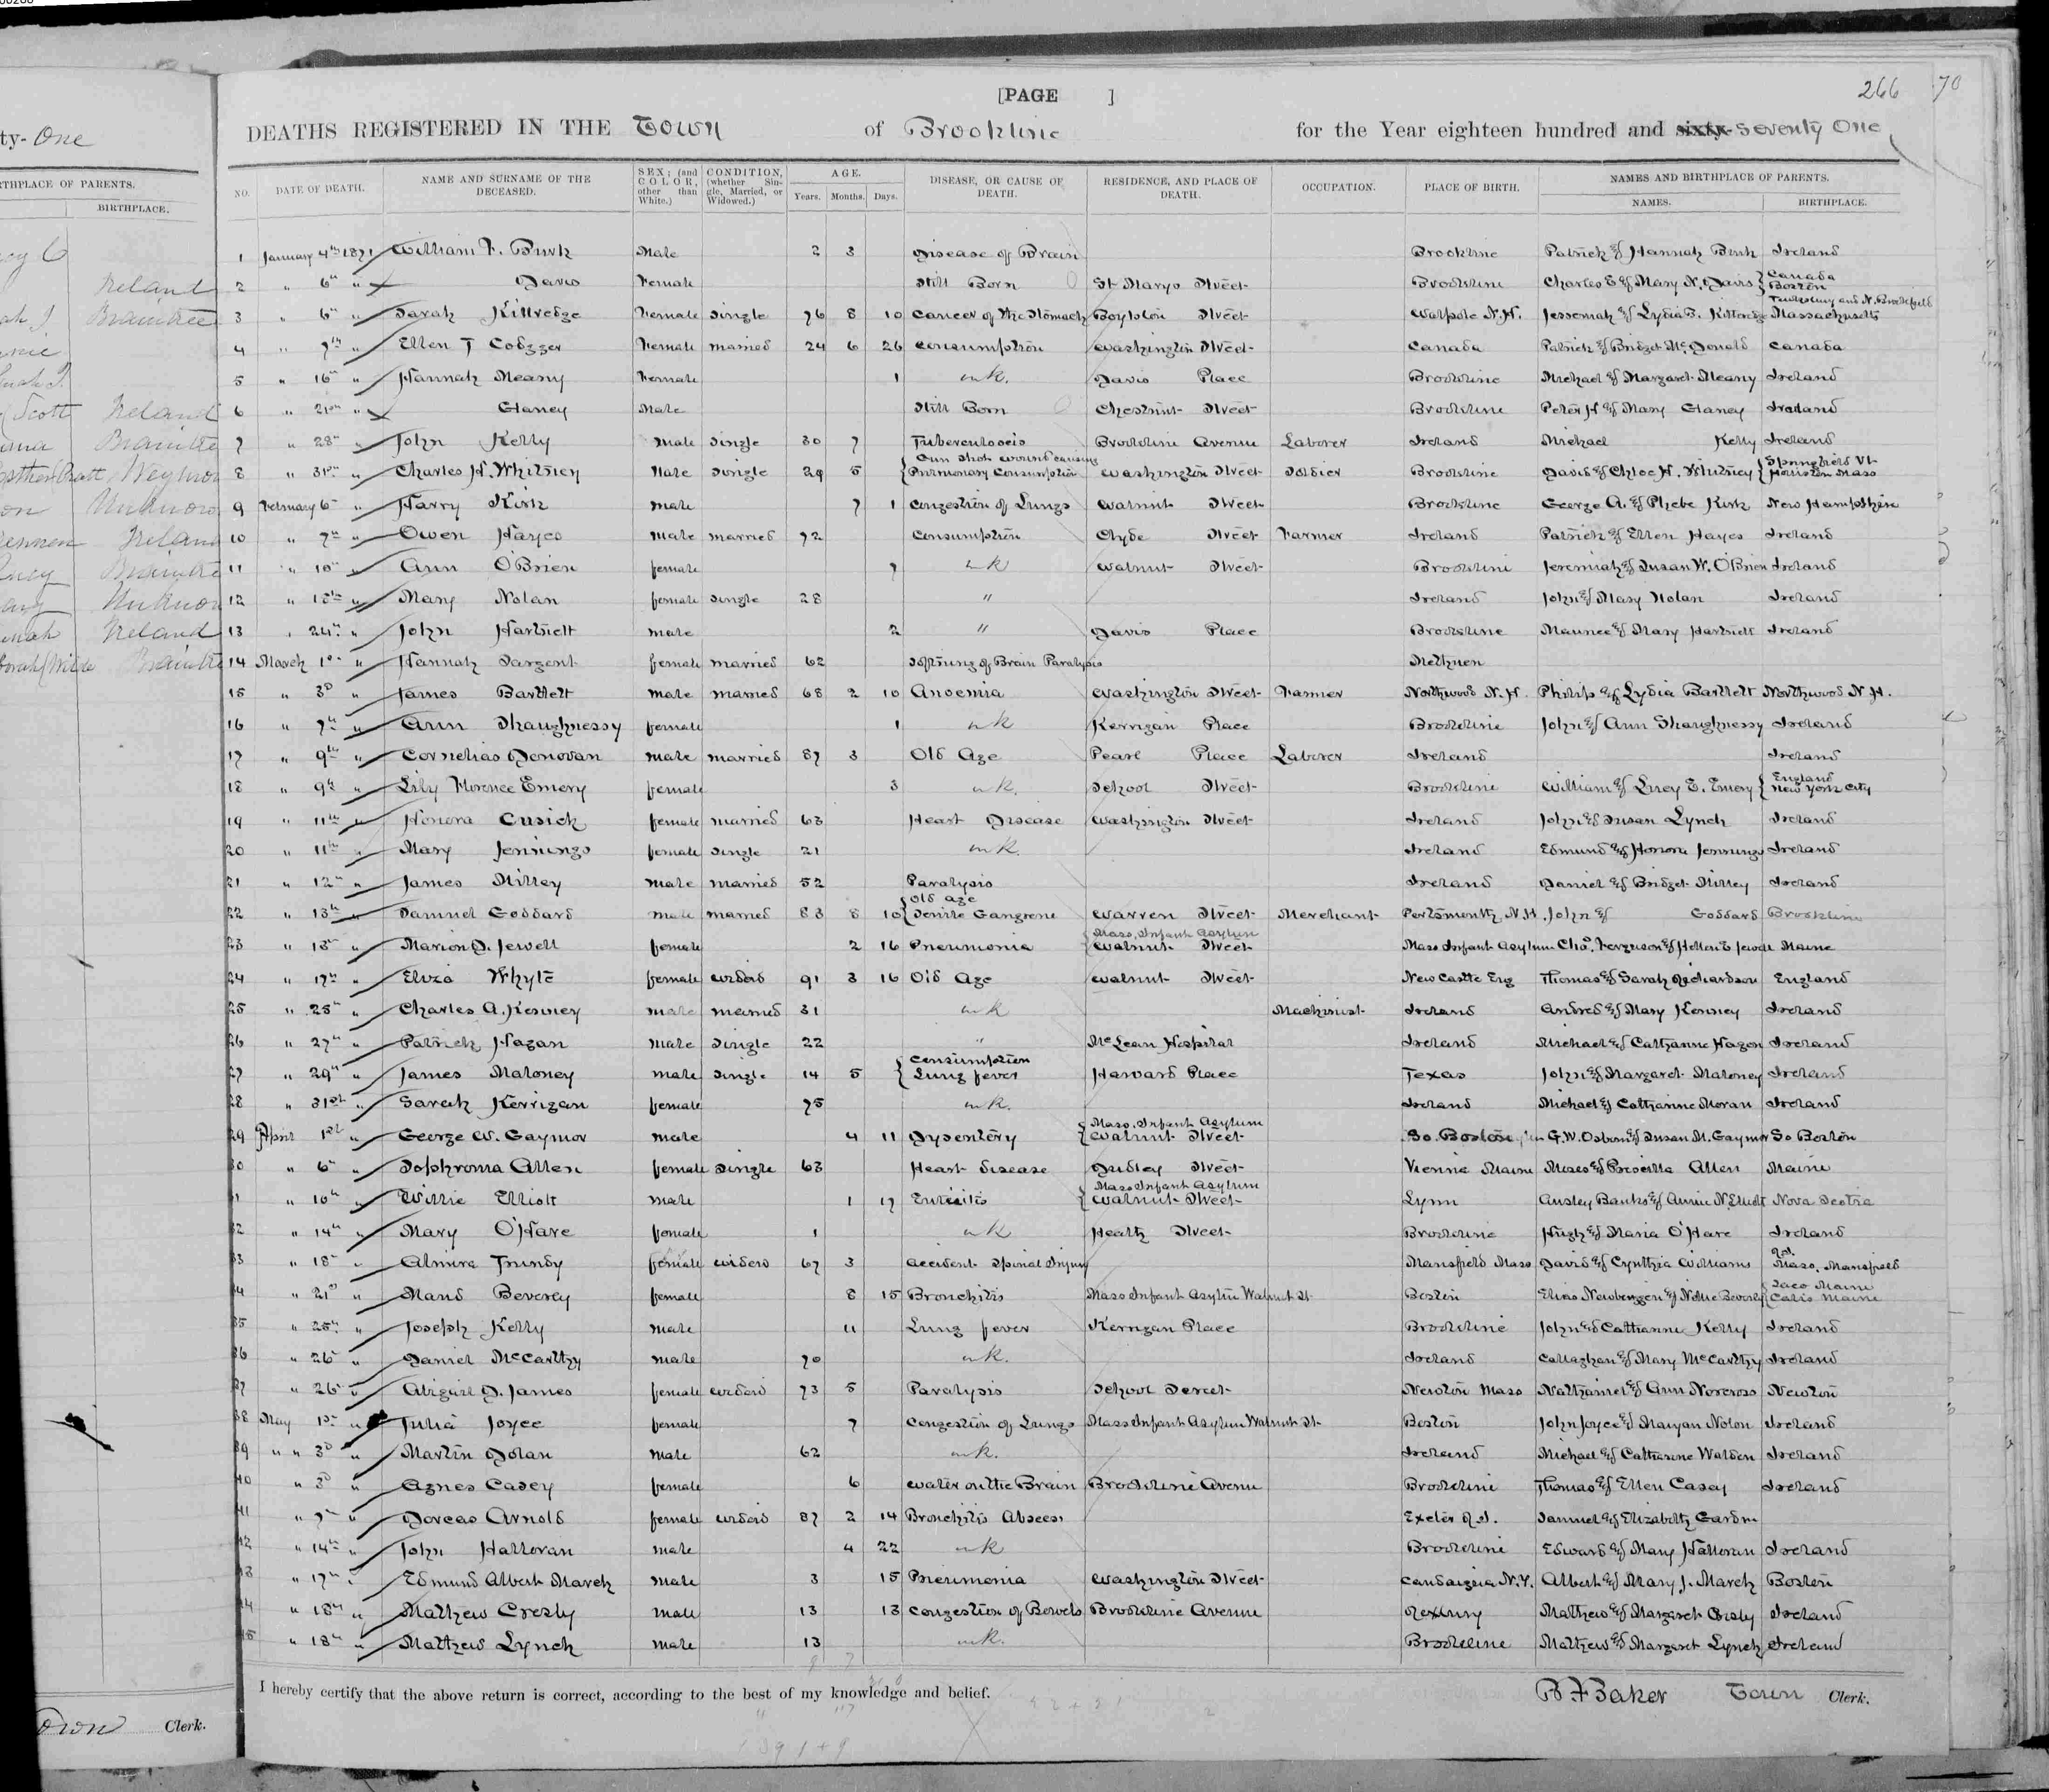 266 70
[PAGE ]
ty- One
DEATHS REGISTERED IN THE Town of Brookline for the Year eighteen hundred and sixty- Seventy One
RTHPLACE OF PARENTS.
BIRTHPLACE.
NO. DATE OF DEATH. NAME AND SURNAME OF THE DECEASED. SEX; (and COLOR, other than White.) CONDITION, (whether Single, Married, or Widowed.) AGE. Years. Months. Days. DISEASE, OR CAUSE OF DEATH. RESIDENCE, AND PLACE OF DEATH. OCCUPATION. PLACE OF BIRTH. NAMES AND BIRTHPLACE OF PARENTS. NAMES. BIRTHPLACE.
1 January 4th 1871 William F. Burk Male 2 3 Disease of Brain Brookline Patrick & Hannah Burk Ireland
2 " 6th " Davis Female Still Born St Marys Street Brookline Charles E & Mary N. Davis { Canada Boston
3 " 6th " Sarah Kittredge Female Single 76 8 10 Cancer of the Stomach Boylston Street Walpole N.H. & Lydia B. Massachusetts
4 " 7th " Ellen T Female married 24 6 26 Consumption Washington Street Canada Patrick & Bridget McDonald Canada
5 " 16th " Hannah Meany Female 1 unk. Davis Place Brookline Michael & Margaret Meany Ireland
6 " 21st " Glaney Male Still Born Chestnut Street Brookline Peter H & Mary Glaney Ireland
7 " 28th " John Kelly Male Single 30 7 Tuberculosis Brookline Avenue Laborer Ireland Michael Kelly Ireland
8 " 31st " Charles H. Whitney Male Single 29 5 { Gun Shot wound causing Pulmonary Consumption Washington Street Soldier Brookline David & Chloe H. Whitney { Springfield Vt Holliston Mass
9 February 6th " Harry Kirk male 7 1 Congestion of Lungs Walnut Street Brookline George A. & Phebe Kirk New Hampshire
10 " 7th " Owen Hayes male married 72 Consumption Clyde Street Farmer Ireland Patrick & Ellen Hayes Ireland
11 " 10th " Ann O'Brien female 7 unk Walnut Street Brookline Jeremiah & Susan W. O'Brien Ireland
12 " 15th " Mary Nolan female Single 28 " Ireland John & Mary Nolan Ireland
13 " 24th " John Hartnett male 2 " Davis Place Brookline Maurice & Mary Hartnett Ireland
14 March 1st " Hannah Sargent female married 62 Softning of Brain Paralysis Methuen
15 " 3d " James Bartlett male married 68 2 10 Anoemia Washington Street Farmer Northwood N.H. Philip & Lydia Bartlett Northwood N.H.
16 " 7th " Ann Shaughnessy female 1 unk Kerrigan Place Brookline John & Ann Shaughnessy Ireland
17 " 9th " Cornelias Donovan male married 87 3 Old Age Pearl Place Laborer Ireland Ireland
18 " 9th " Lily Florence Emery female 3 unk. School Street Brookline William & Lucy E. Emery { England New York City
19 " 11th " Honora Cusick female married 63 Heart Disease Washington Street Ireland John & Susan Lynch Ireland
20 " 11th " Mary Jennings female Single 21 unk. Ireland Edmund & Honora Jennings Ireland
21 " 12th " James Killey male married 52 Paralysis Ireland Daniel & Bridget Killey Ireland
22 " 13th " Samuel Goddard male married 83 8 10 { Old Age Senile Gangrene Warren Street Merchant Portsmouth, N.H. John & Goddard Brookline
23 " 15th " Marion D. Jewell female 2 16 Pneumonia { Mass. Infant Asylum Walnut Street Mass Infant Asylum Chas. Ferguson & Hellen E Jewell Maine
24 " 17th " Eliza Whyte female widow 91 3 16 Old Age Walnut Street New Castle Eng Thomas & Sarah Richardson England
25 " 25th " Charles A. Kenney male married 31 unk Machinist Ireland Andrew & Mary Kenney Ireland
26 " 27th " Patrick Hagan male Single 22 " McLean Hospital Ireland Michael & Catharine Hagan Ireland
27 " 29th " James Maloney male Single 14 5 { Consumption Lung fever Harvard Place Texas John & Margaret Maloney Ireland
28 " 31st " Sarah Kerrigan female 75 unk. Ireland Michael & Catharine Moran Ireland
29 April 1st " George W. Gaymor male 4 11 Dysentery { Mass. Infant Asylum Walnut Street So. Boston G.W. Osborn & Susan M. Gaymor So Boston
30 " 6th " Sophronia Allen female Single 63 Heart Disease Dudley Street Vienna Maine Moses & Priscilla Allen Maine
31 " 10th " Willie Elliott male 1 17 Enteritis { Mass Infant Asylum Walnut Street Lynn Ansley Banks & Annie N. Elliott Nova Scotia
32 " 14th " Mary O'Hare female 1 unk Heath Street Brookline Hugh & Maria O'Hare Ireland
33 " 18th " Almira Trundy female widow 67 3 Accident Spinal Injury Mansfield Mass David & Cynthia Williams Mass. Mansfield
34 " 21st " Maud Beverly female 8 15 Bronchitis Mass Infant Asylum Walnut St Boston Elias & Nellie Beverly { Saco Maine Calis Maine
35 " 25th " Joseph Kelly male 11 Lung fever Kerrigan Place Brookline John & Catharine Kelly Ireland
36 " 26th " Daniel McCarthy male 70 unk. Ireland Callaghan & Mary McCarthy Ireland
37 " 26th " Abigail D. James female widow 73 5 Paralysis School Street Newton Mass Nathaniel & Ann Norcross Newton
38 May 1st " Julia Joyce female 7 Congestion of Lungs Mass Infant Asylum Walnut St Boston John Joyce & Maryan Nolon Ireland
39 " " 3d " Martin Dolan male 62 unk. Ireland Michael & Catharine Walden Ireland
40 " 3d " Agnes Casey female 6 Water on the Brain Brookline Avenue Brookline Thomas & Ellen Casey Ireland
41 " 7th " Dorcas Arnold female widow 87 2 14 Bronchitis Abscess Exeter R.I. Samuel & Elizabeth
42 " 14th " John Halloran male 4 22 unk Brookline Edward & Mary Halloran Ireland
43 " 17th " Edmund Albert March male 3 15 Pneumonia Washington Street Candaigua N.Y. Albert & Mary J. March Boston
44 " 18th " Mathew Crosby male 13 13 Congestion of Bowels Brookline Avenue Roxbury Mathew & Margaret Crosby Ireland
45 " 18th " Mathew Lynch male 13 unk. Brookline Mathew & Margaret Lynch Ireland
I hereby certify that the above return is correct, according to the best of my knowledge and belief. B F Baker Town Clerk.
Ireland
Braintree
Scott Ireland
Ireland
Town Clerk.